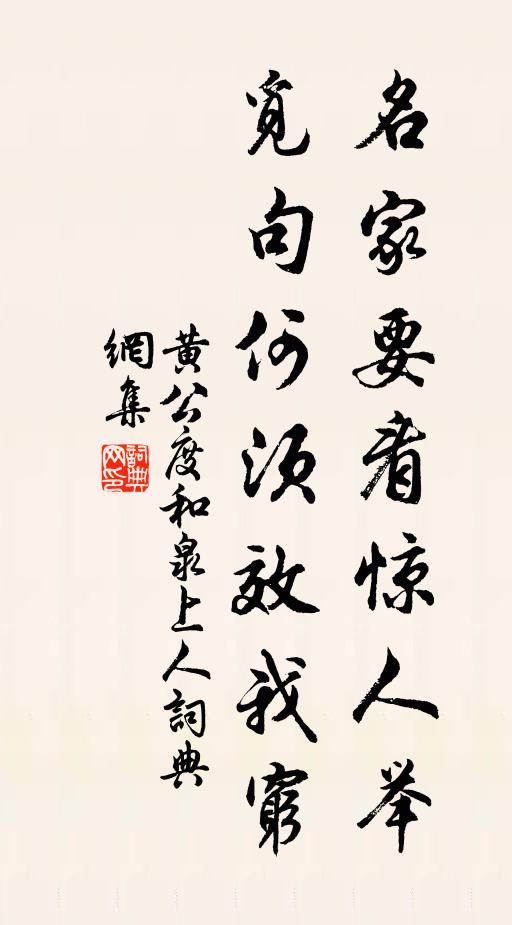 名家要看惊人举
觅句何须效我窮
黄公度和泉上人詞典
網集
詞典网印